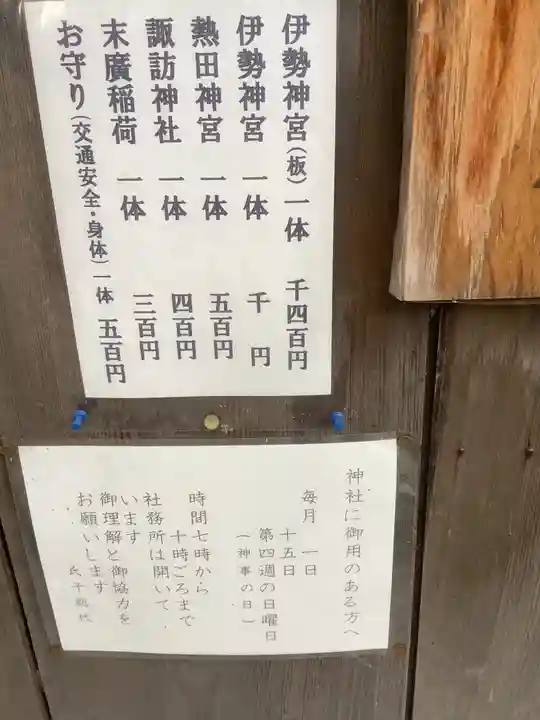 伊勢神宮(板)一体 千四百円
伊勢神宮 一体 千 円
熱田神宮 一体 五百円
諏訪神社 一体 四百円
末廣稲荷 一体 三百円
お守り(交通安全・身体)一体 五百円
神社に御用のある方へ
毎月 一日
十五日
第四週の日曜日
(神事の日)
時間七時から
十時ごろまで
社務所は開いて
います
御理解と御協力を
お願いします
氏子総代